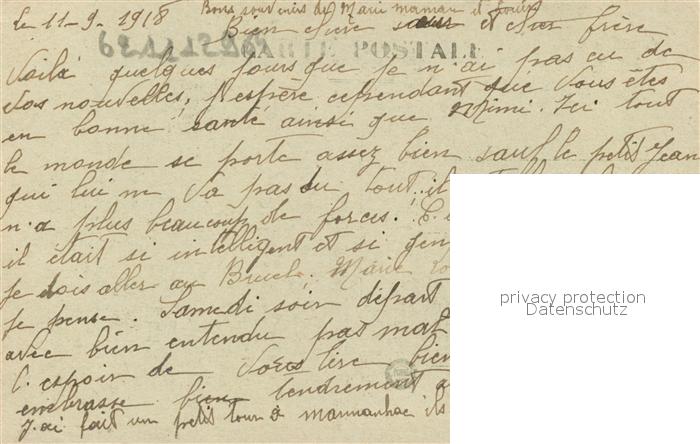 Bons souvenirs de Marie maman et Louis
Le 11-9-1918
Bien chère sœur et cher frère
CARTE POSTALE
Voilà quelques jours que je n'ai pas eu de
vos nouvelles, j'espère cependant que vous êtes
en bonne santé ainsi que Mimi. Ici tout
le monde se porte assez bien sauf le petit Jean
qui lui ne va pas du tout, il
n'a plus beaucoup de forces.
il était si intelligent et si gen
je dois aller au Marie
je pense. Samedi soir départ
avec bien entendu pas mal
l'espoir de vous lire bien
embrasse bien tendrement
J'ai fait un petit tour à ils
privacy protection
Datenschutz